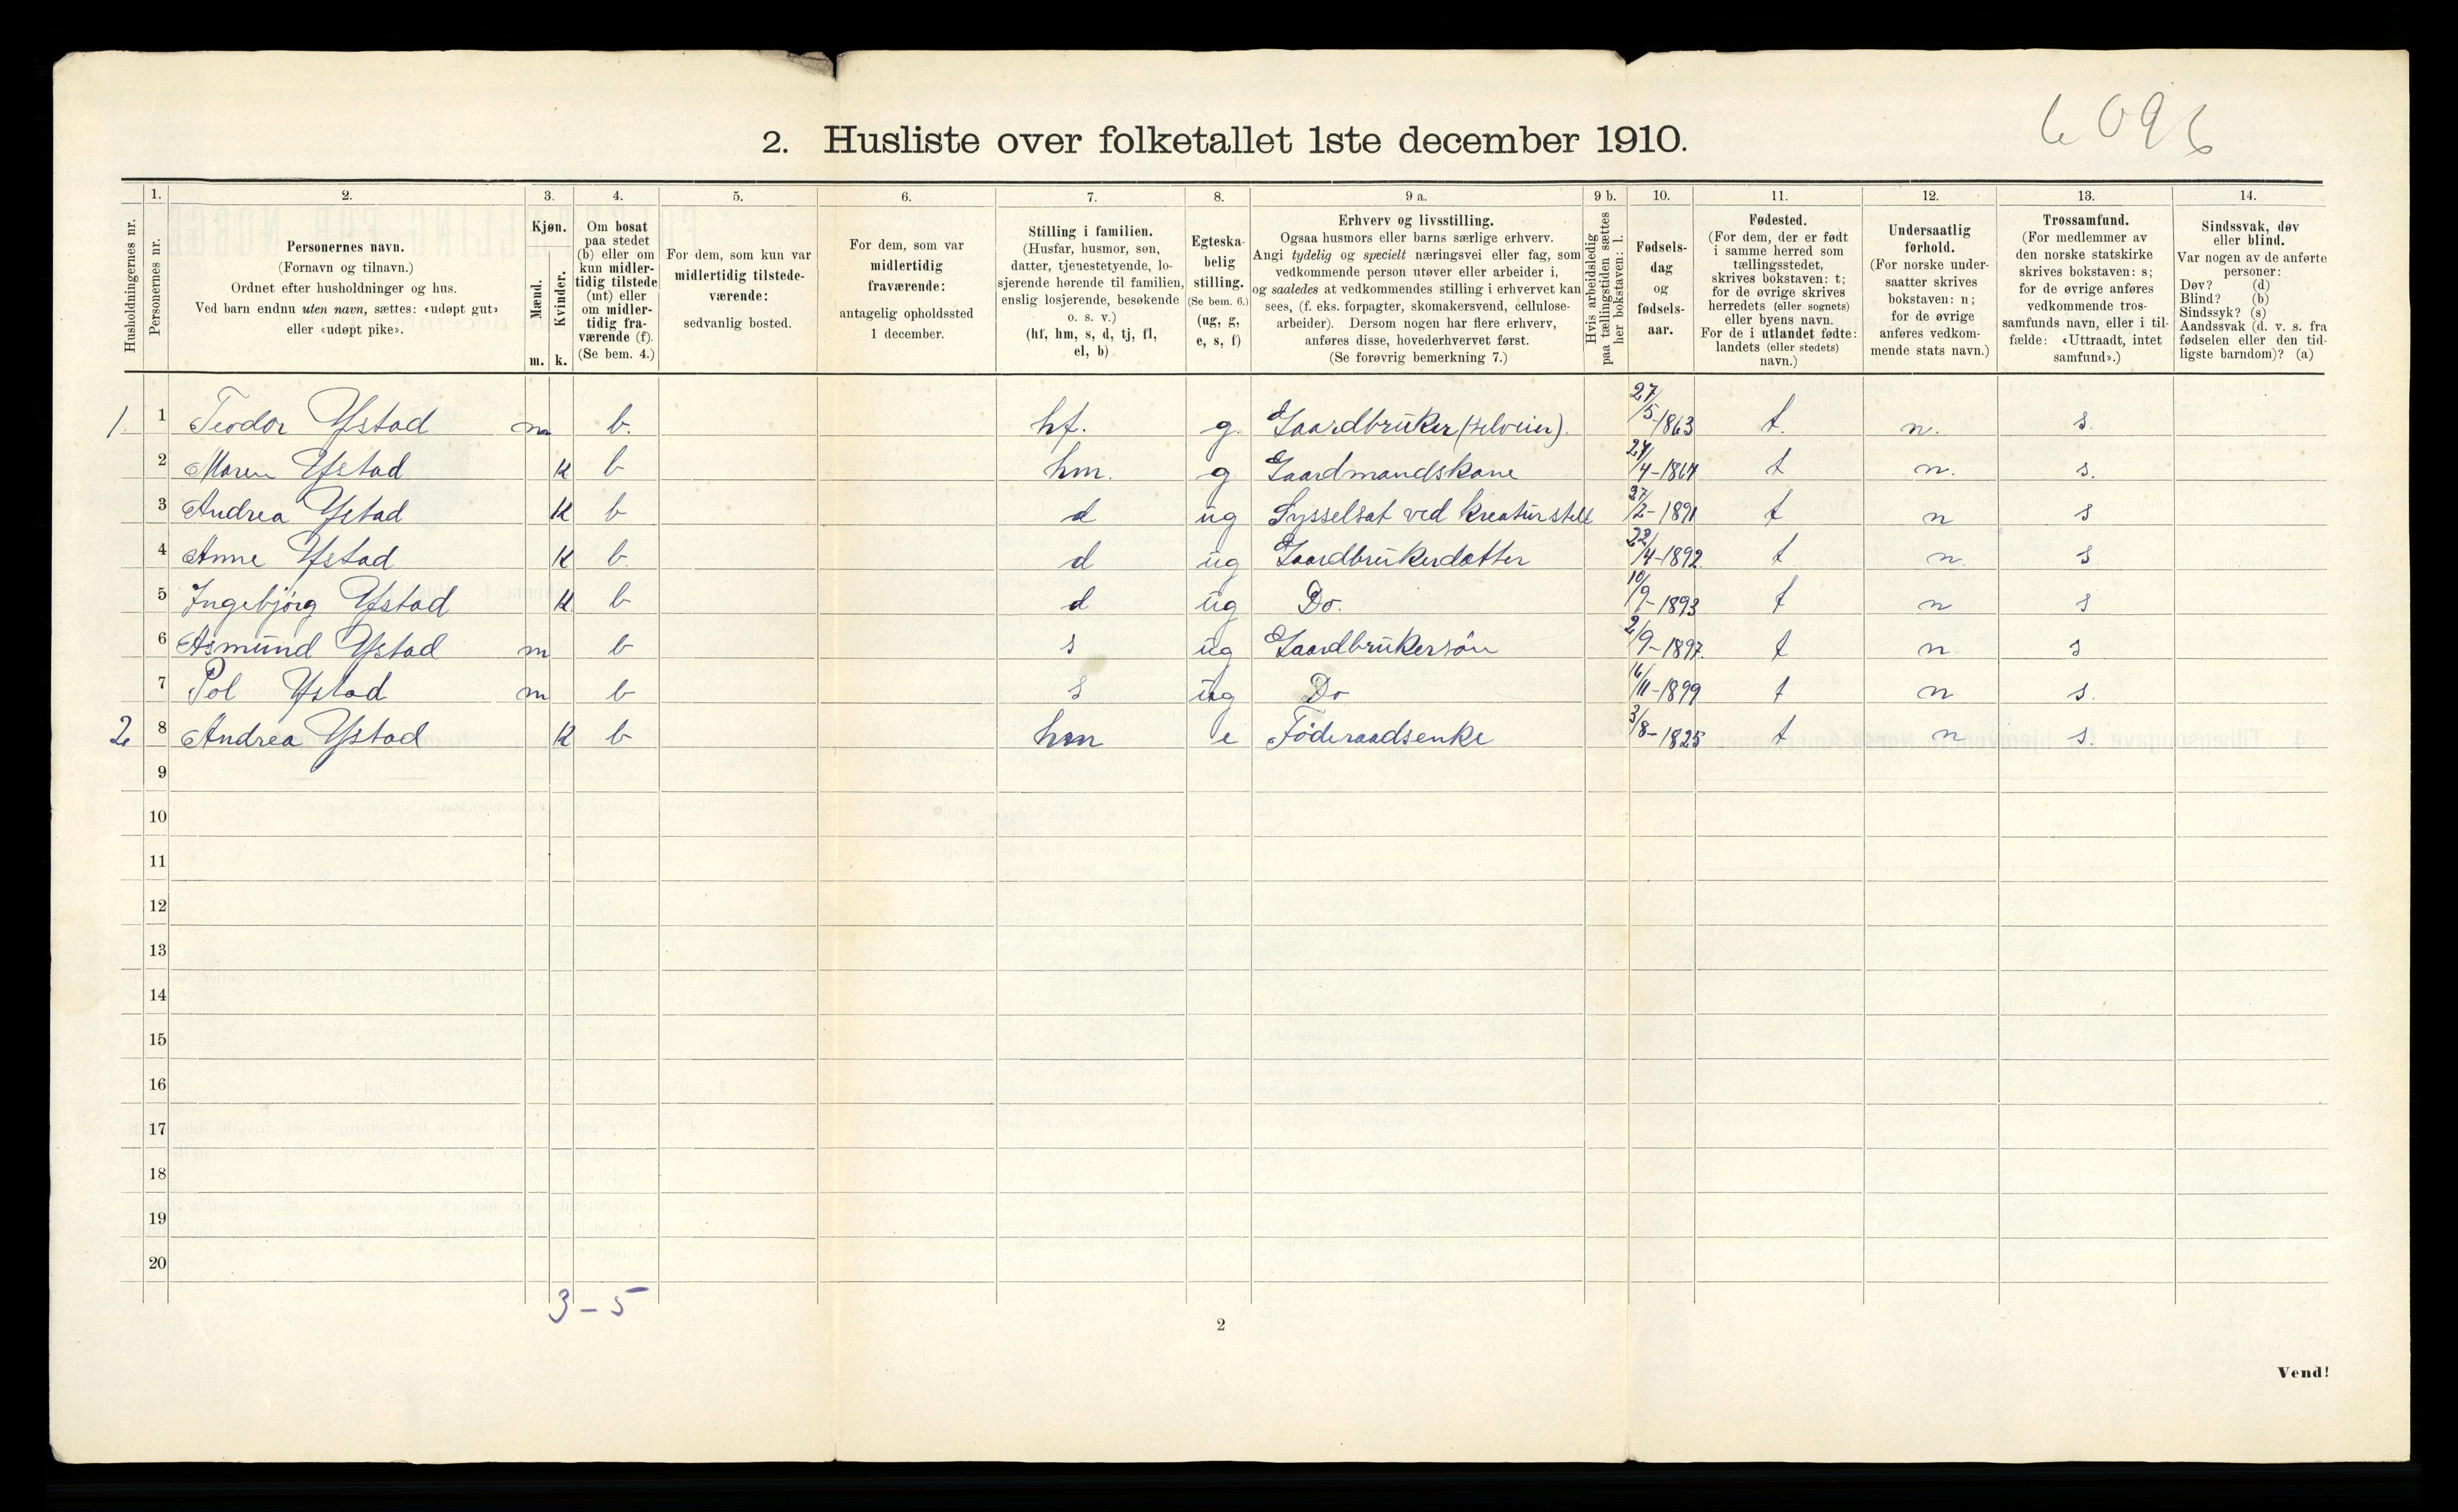 6096
2. Husliste over folketallet 1ste december 1910.
Husholdningernes nr.
1.
Personernes nr.
2.
Personernes navn.
(Fornavn og tilnavn.)
Ordnet efter husholdninger og hus.
Ved barn endnu uten navn, sættes: «udøpt gut»
eller «udøpt pike».
3.
Kjøn.
Mænd.
m.
Kvinder.
k.
4.
Om bosat
paa stedet
(b) eller om
kun midler-
tidig tilstede
(mt) eller
om midler-
tidig fra-
værende (f).
(Se bem. 4.)
5.
For dem, som kun var
midlertidig tilstede-
værende:
sedvanlig bosted.
6.
For dem, som var
midlertidig
fraværende:
antagelig opholdssted
1 december.
7.
Stilling i familien.
(Husfar, husmor, søn,
datter, tjenestetyende, lo-
sjerende hørende til familien,
enslig losjerende, besøkende
o. s. v.)
(hf, hm, s, d, tj, fl,
el, b)
8.
Egteska-
belig
stilling.
(Se bem. 6.)
(ug, g,
e, s, f)
9 a.
Erhverv og livsstilling.
Ogsaa husmors eller barns særlige erhverv.
Angi tydelig og specielt næringsvei eller fag, som
vedkommende person utøver eller arbeider i,
og saaledes at vedkommendes stilling i erhvervet kan
sees, (f. eks. forpagter, skomakersvend, cellulose-
arbeider). Dersom nogen har flere erhverv,
anføres disse, hovederhvervet først.
(Se forøvrig bemerkning 7.)
9 b.
Hvis arbeidsledig
paa tællingstiden sættes
her bokstaven: l.
10.
Fødsels-
dag
og
fødsels-
aar.
11.
Fødested.
(For dem, der er født
i samme herred som
tællingsstedet,
skrives bokstaven: t;
for de øvrige skrives
herredets (eller sognets)
eller byens navn.
For de i utlandet fødte:
landets (eller stedets)
navn.)
12.
Undersaatlig
forhold.
(For norske under-
saatter skrives
bokstaven: n;
for de øvrige
anføres vedkom-
mende stats navn.)
13.
Trossamfund.
(For medlemmer av
den norske statskirke
skrives bokstaven: s;
for de øvrige anføres
vedkommende tros-
samfunds navn, eller i til-
fælde: «Uttraadt, intet
samfund».)
14.
Sindssvak, døv
eller blind.
Var nogen av de anførte
personer:
Døv? (d)
Blind? (b)
Sindssyk? (s)
Aandssvak (d. v. s. fra
fødselen eller den tid-
ligste barndom)? (a)
1. 1 Teodor Ystad m b. hf. g. Gaardbruker (selveier). 27/5-1863 t. n. s.
2 Maren Ystad k b hm. g Gaardmandskone 24/4-1864 t n. s.
3 Andrea Ystad k b d ug Sysselsat ved kreaturstell 27/2-1891 t n s
4 Anne Ystad k b. d ug Gaardbrukerdatter 22/4-1892 t n. s
5 Ingebjörg Ystad k b d ug Do. 10/9-1893 t n s
6 Asmund Ystad m b s ug Gaardbrukersön 2/9-1897. t n s
7 Pol Ystad m b s ug Do 16/11-1899 t n s.
2 8 Andrea Ystad k b hm e Föderaadsenke 3/8-1825 t n s.
9
10
11
12
13
14
15
16
17
18
19
20
3-5
2
Vend!